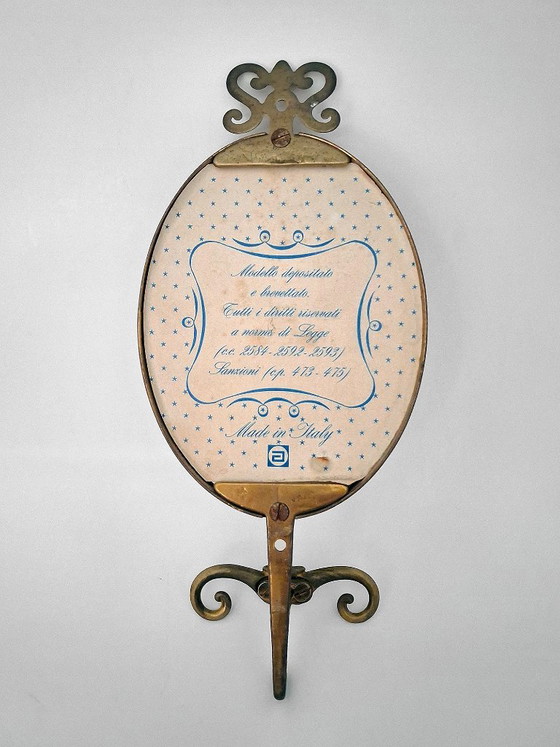 Modello depositato
e brevettato.
Tutti i diritti riservati
a norma di Legge
(c.c. 2584-2592-2593)
Sanzioni (c.p. 473-475)
Made in Italy